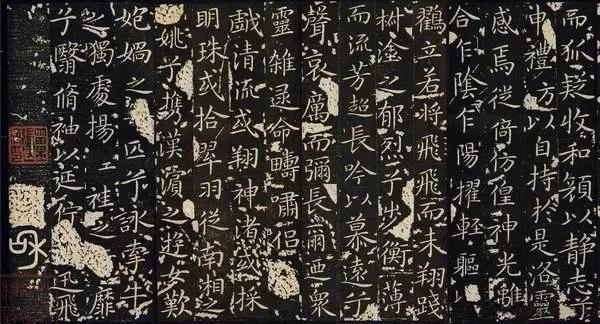 而狐疑收和顏以静志兮
申禮防以自持於是洛靈
感焉徙倚仿偟神光離
合乍陰乍陽擢軽軀以
鸛立若將飛飛而未翔踐
椒塗之郁烈兮步衡薄
而流芳超長吟以慕遠兮
聲哀厲而彌長爾迺眾
靈雜遝命疇嘯侣
戯清流或翔神渚或採
明珠或拾翠羽從南湘之
姚兮攜漢濱之遊女歎
媧之匹兮詠牽牛
之獨處揚袿之靡
兮翳脩袖以延佇迅飛